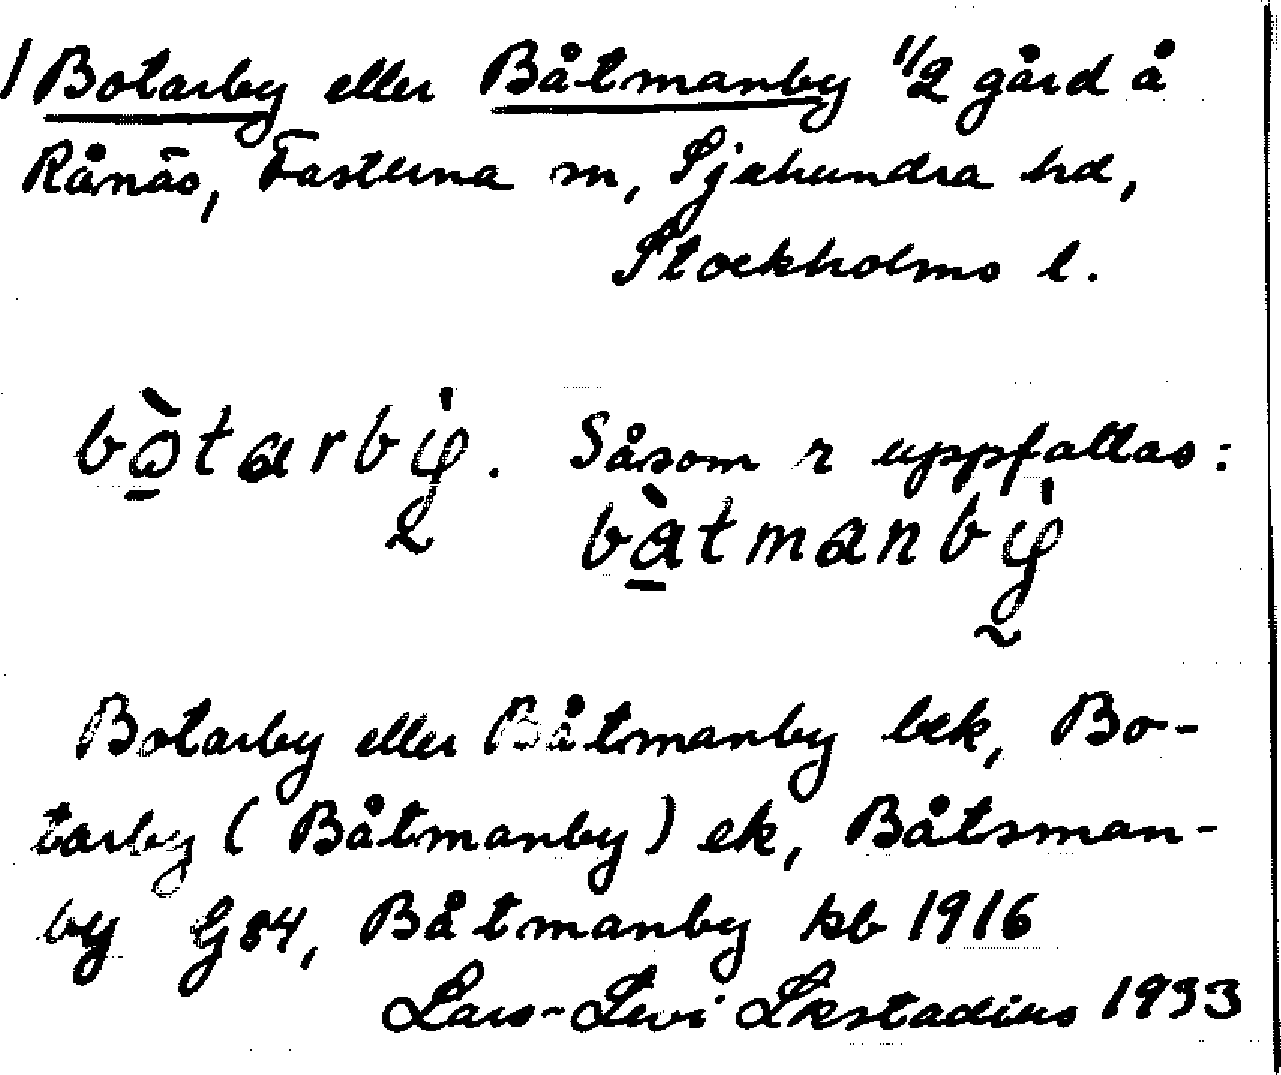 / Botarby eller Båtmanby 1/2 gård å
Rånäs, Fasterna sn, Sjuhundra hd,
Stockholms l.
bò̱tarbẏ. Såsom r uppfattas:
bà̱tmanbẏ
Botarby eller Båtmanby bek, Bo-
tarby (Båtmanby) ek, Båtsman-
by G84, Båtmanby kb 1916
Lars-Levi Læstadius 1933